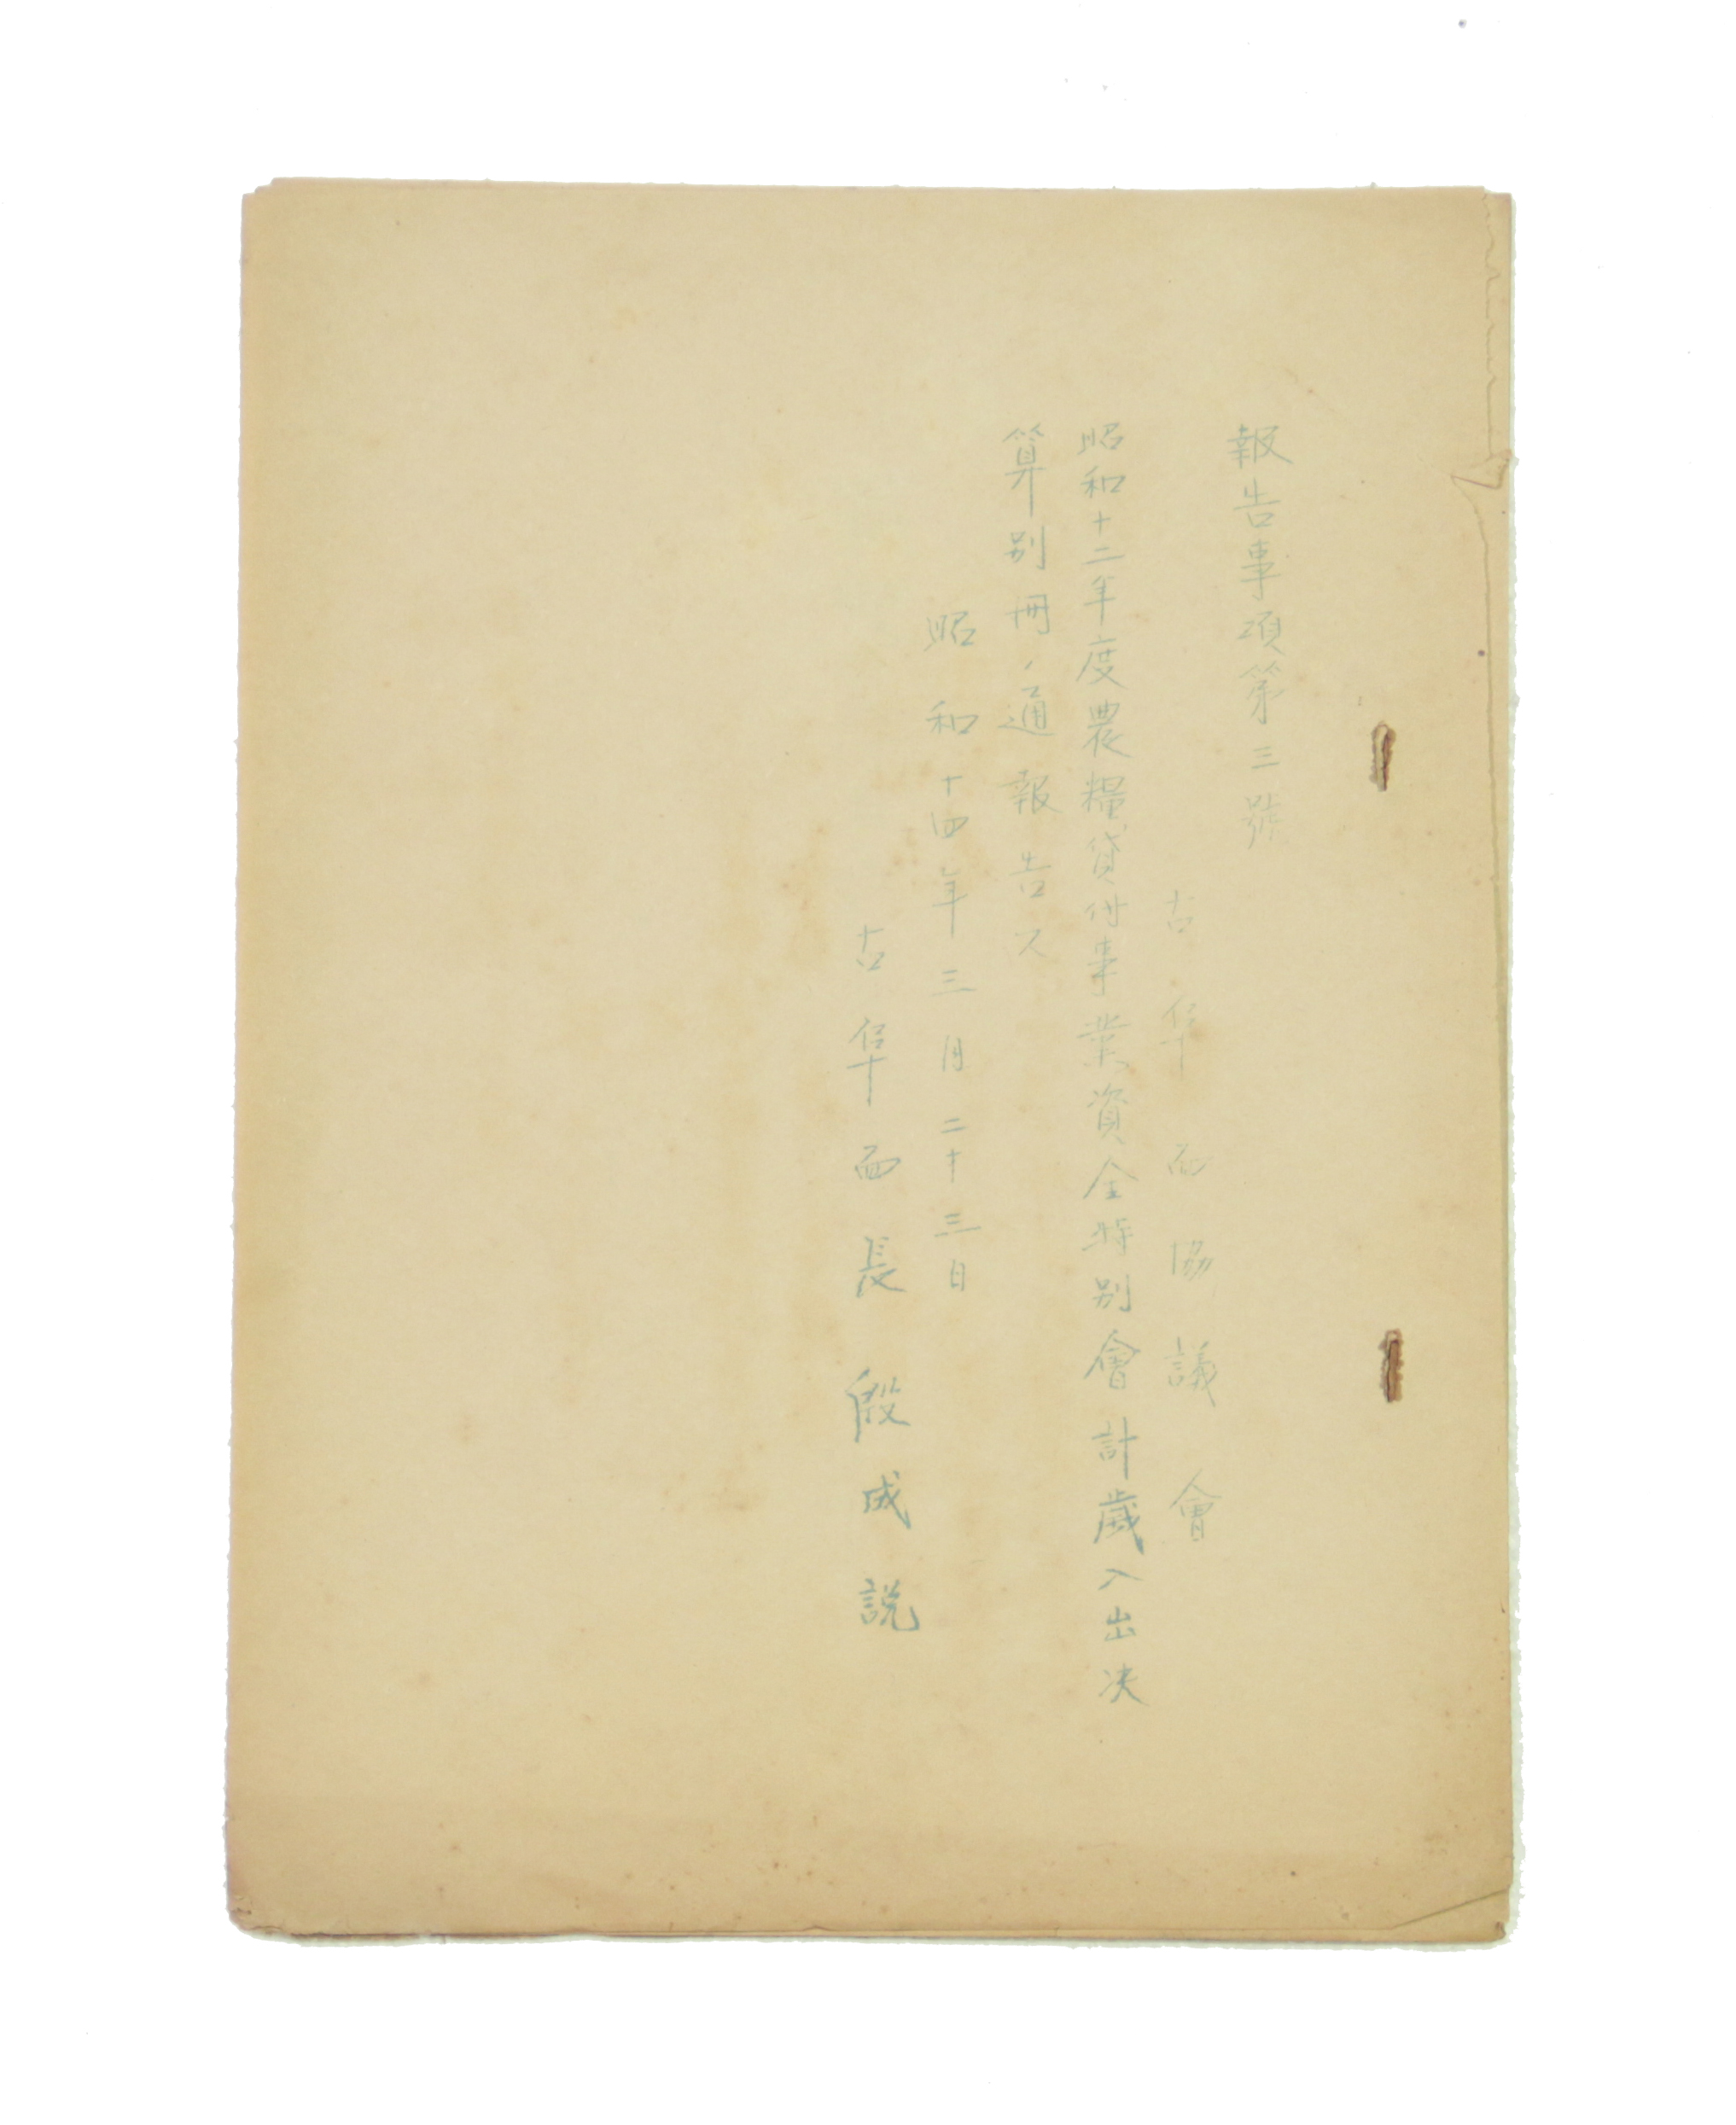 報告事項第三號
古阜面協議會
昭和十二年度農糧貸付事業資金特別會計歲入出決
算別冊ノ通報告ス
昭和十四年三月二十三日
古阜面長 殷成説